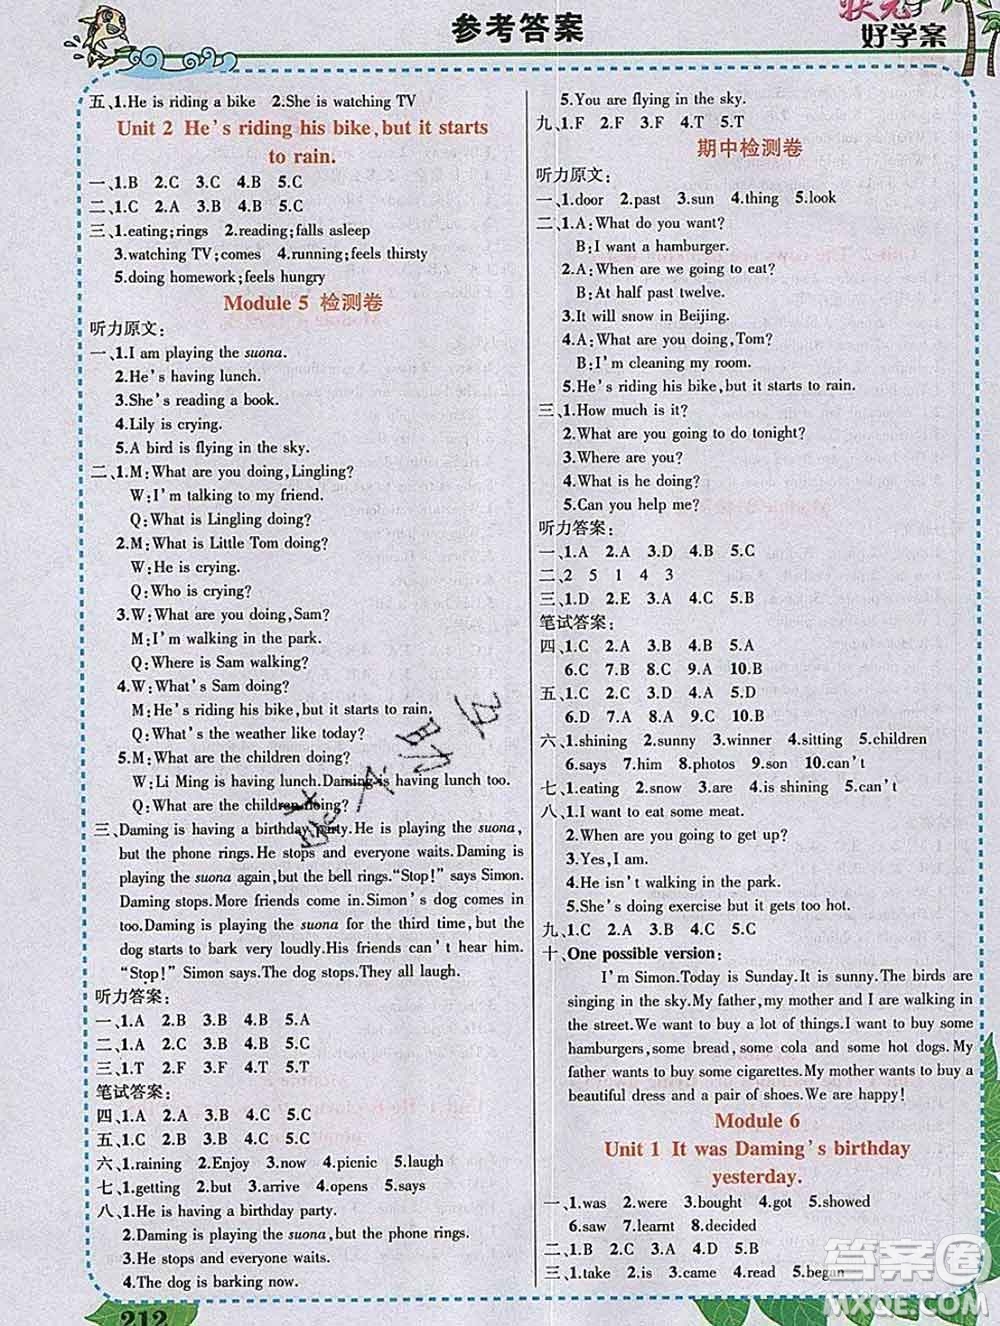 参考答案
状元
好学案
五、1.He is riding a bike 2.She is watching TV
Unit 2 He's riding his bike,but it starts
to rain.
一、1.B 2.C 3.C 4.B 5.C
二、1.C 2.A 3.B 4.B 5.C
三、1.eating;rings 2.reading;falls asleep
3.watching TV;comes 4.running;feels thirsty
5.doing homework;feels hungry
Module 5 检测卷
听力原文:
一、1.I am playing the suona.
2.He's having lunch.
3.She's reading a book.
4.Lily is crying.
5.A bird is flying in the sky.
二、1.M:What are you doing,Lingling?
W:I'm talking to my friend.
Q:What is Lingling doing?
2.M:What is Little Tom doing?
W:He is crying.
Q:Who is crying?
3.W:What are you doing,Sam?
M:I'm walking in the park.
Q:Where is Sam walking?
4.W:What's Sam doing?
M:He's riding his bike,but it starts to rain.
Q:What's the weather like today?
5.M:What are the children doing?
W:Li Ming is having lunch.Daming is having lunch too.
Q:What are the children doing?
三、Daming is having a birthday party.He is playing the suona,
but the phone rings.He stops and everyone waits.Daming is
playing the suona again,but the bell rings."Stop!" says Simon.
Daming stops.More friends come in.Simon's dog comes in
too.Daming is playing the suona for the third time,but the
dog starts to bark very loudly.His friends can't hear him.
"Stop!" Simon says.The dog stops.They all laugh.
听力答案:
一、1.A 2.B 3.B 4.B 5.A
二、1.A 2.B 3.B 4.B 5.B
三、1.T 2.F 3.F 4.T 5.T
笔试答案:
四、1.A 2.A 3.B 4.B 5.C
五、1.C 2.C 3.C 4.A 5.B
六、1.raining 2.Enjoy 3.now 4.picnic 5.laugh
七、1.getting 2.but 3.arrive 4.opens 5.says
八、1.He is having a birthday party.
2.Daming is playing the suona,but the phone rings.
3.He stops and everyone waits.
4.The dog is barking now.
212
5.You are flying in the sky.
九、1.F 2.F 3.F 4.T 5.T
期中检测卷
听力原文:
一、1.door 2.past 3.sun 4.thing 5.look
二、1.A:What do you want?
B:I want a hamburger.
2.A:When are we going to eat?
B:At half past twelve.
3.It will snow in Beijing.
4.A:What are you doing,Tom?
B:I'm cleaning my room.
5.He's riding his bike,but it starts to rain.
三、1.How much is it?
2.What are you going to do tonight?
3.Where are you?
4.What is he doing?
5.Can you help me?
听力答案:
一、1.A 2.A 3.D 4.B 5.C
二、2 5 1 4 3
三、1.D 2.E 3.A 4.C 5.B
笔试答案:
四、1.C 2.A 3.B 4.B 5.A
6.C 7.B 8.C 9.A 10.B
五、1.C 2.C 3.D 4.A 5.D
6.D 7.A 8.A 9.C 10.B
六、1.shining 2.sunny 3.winner 4.sitting 5.children
6.says 7.him 8.photos 9.son 10.can't
七、1.eating 2.snow 3.are 4.is shining 5.can
八、1.I want to eat some meat.
2.When are you going to get up?
3.Yes,I am.
4.He isn't walking in the park.
5.She's doing exercise but it gets too hot.
九、1.C 2.A 3.C 4.A 5.B
十、One possible version:
I'm Simon.Today is Sunday.It is sunny.The birds are
singing in the sky.My father,my mother and I are walking in
the street.We want to buy a lot of things.I want to buy some
hamburgers,some bread,some cola and some hot dogs.My
father wants to buy some cigarettes.My mother wants to buy a
beautiful dress and a pair of shoes.We are happy!
Module 6
Unit 1 It was Daming's birthday
yesterday.
一、1.was 2.were 3.bought 4.got 5.showed
6.saw 7.learnt 8.decided
二、1.C 2.B 3.A 4.A 5.B
三、1.take 2.is 3.came 4.read 5.began
答案圈
MXQE.COM